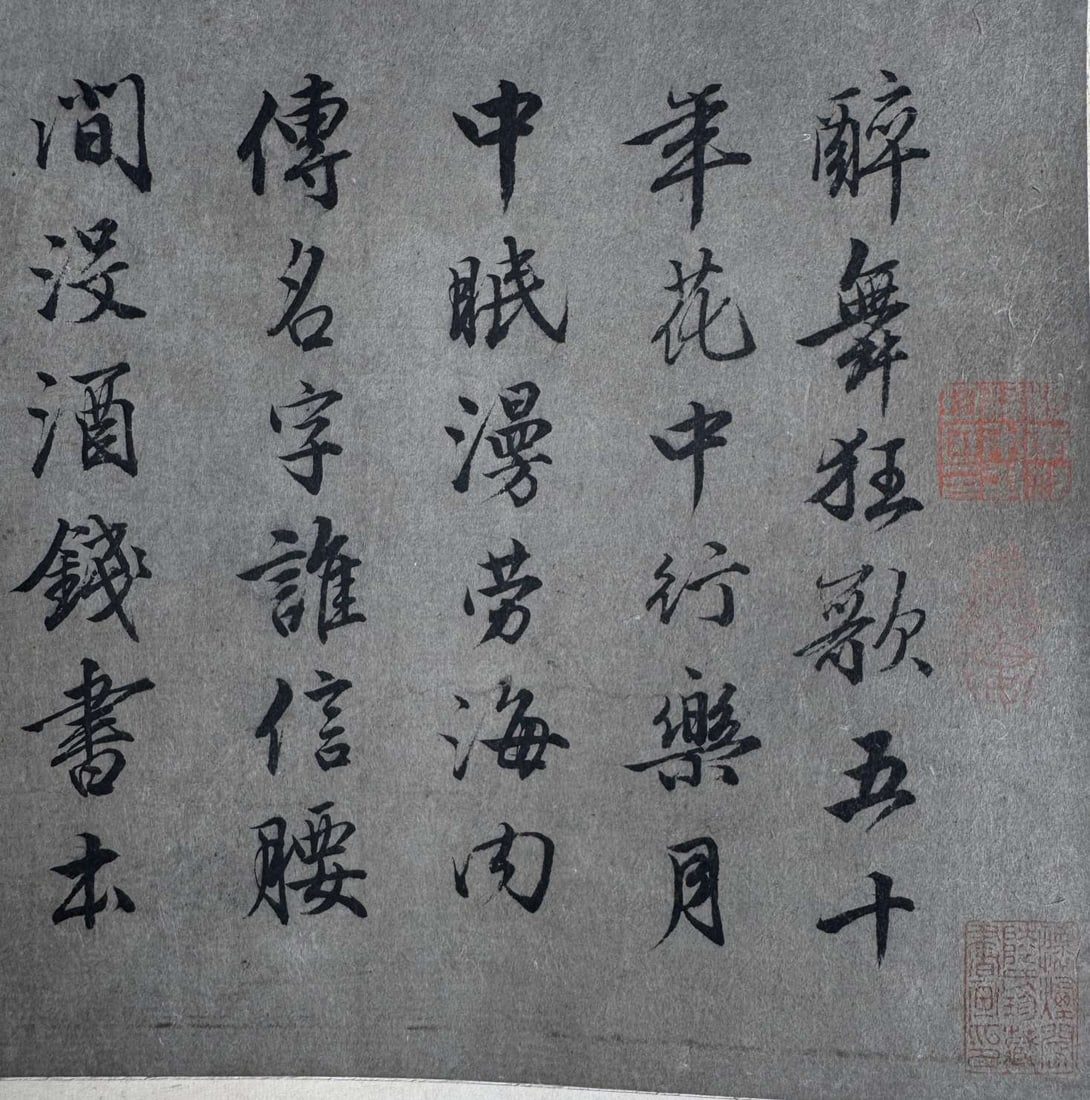 醉舞狂歌五十
年花中行樂月
中眠漫勞海内
傳名字誰信腰
間沒酒錢書本